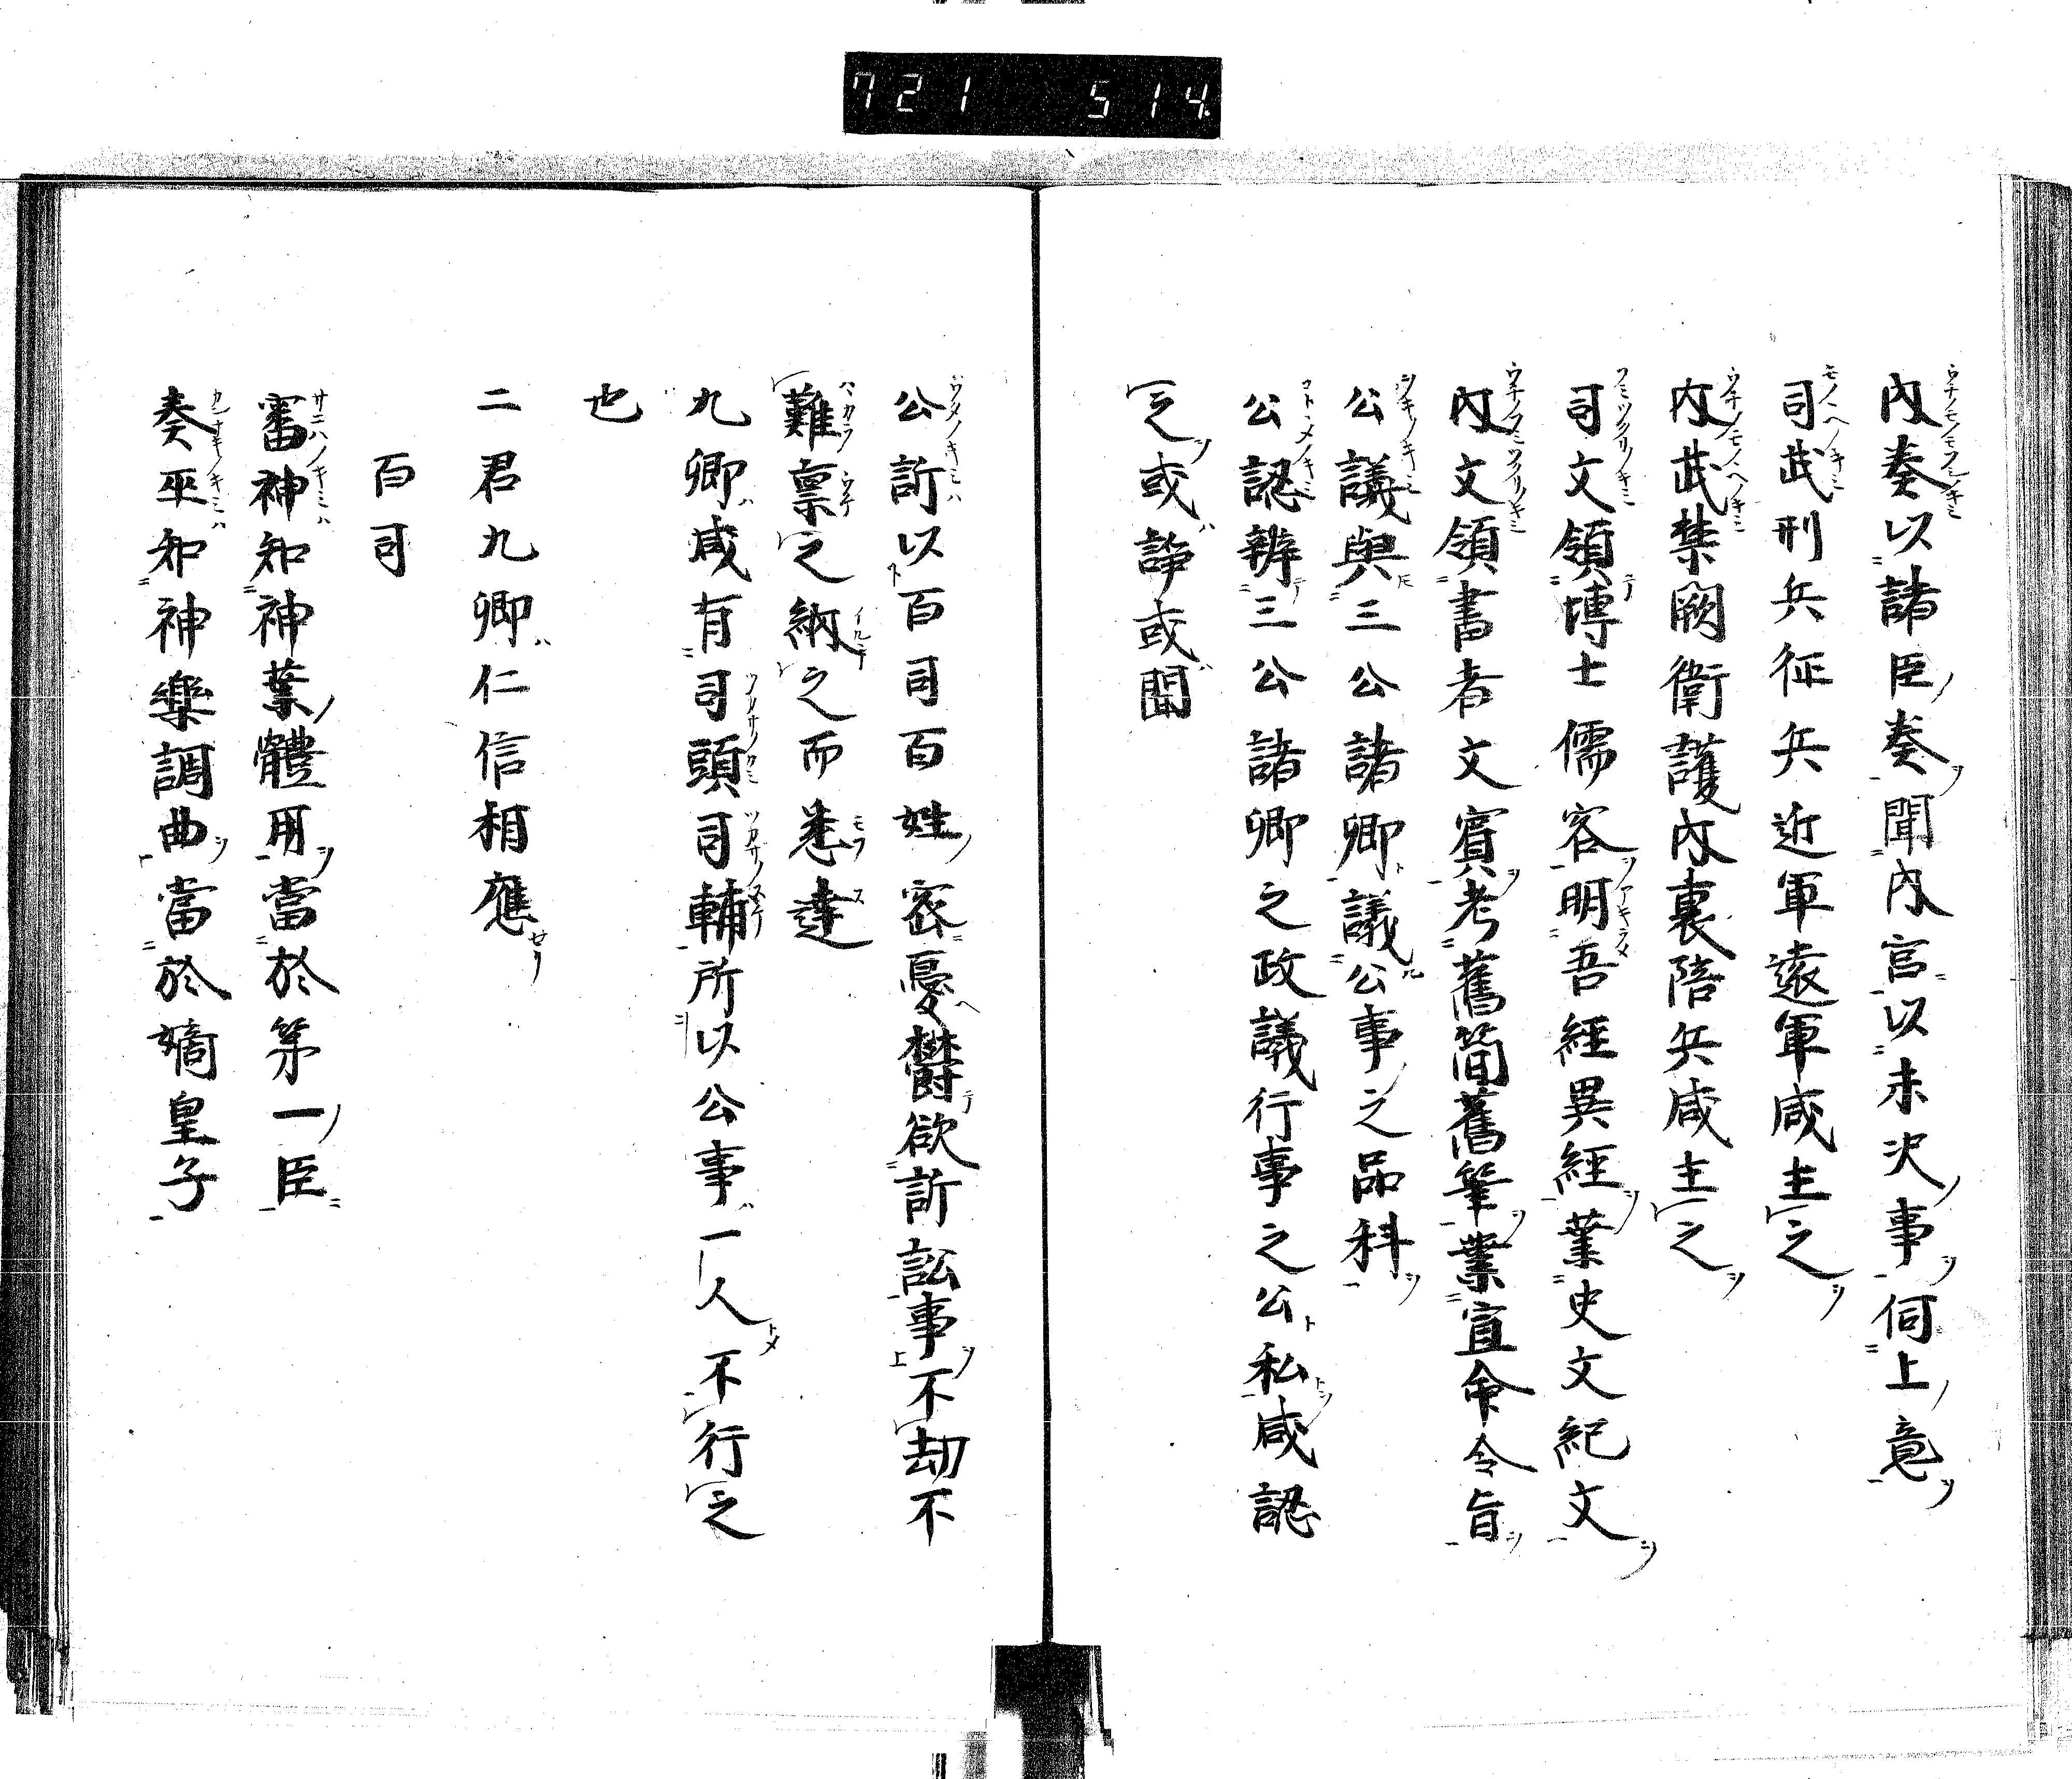 721 514
內奏以諸臣奏聞內官以未決事伺上意
司武刑兵征兵近軍遠軍咸主之
內武禁闕衛護內裏陪兵咸主之
司文領博士儒客明吾經異經業史文紀文
內文領書者文賓考舊簡舊筆業宣命令旨
公議與三公諸卿議公事之品科
公認辨三公諸卿之政議行事之公私咸認
之或諍或聞
公訢以百司百姓密憂欝欲訢訟事不劫不
難禀之納之而悉達
九卿咸有司頭司輔所以公事一人不行之
也
二君九卿仁信相應
百司
審神知神業體用當於第一臣
奏巫知神樂調曲當於嫡皇子